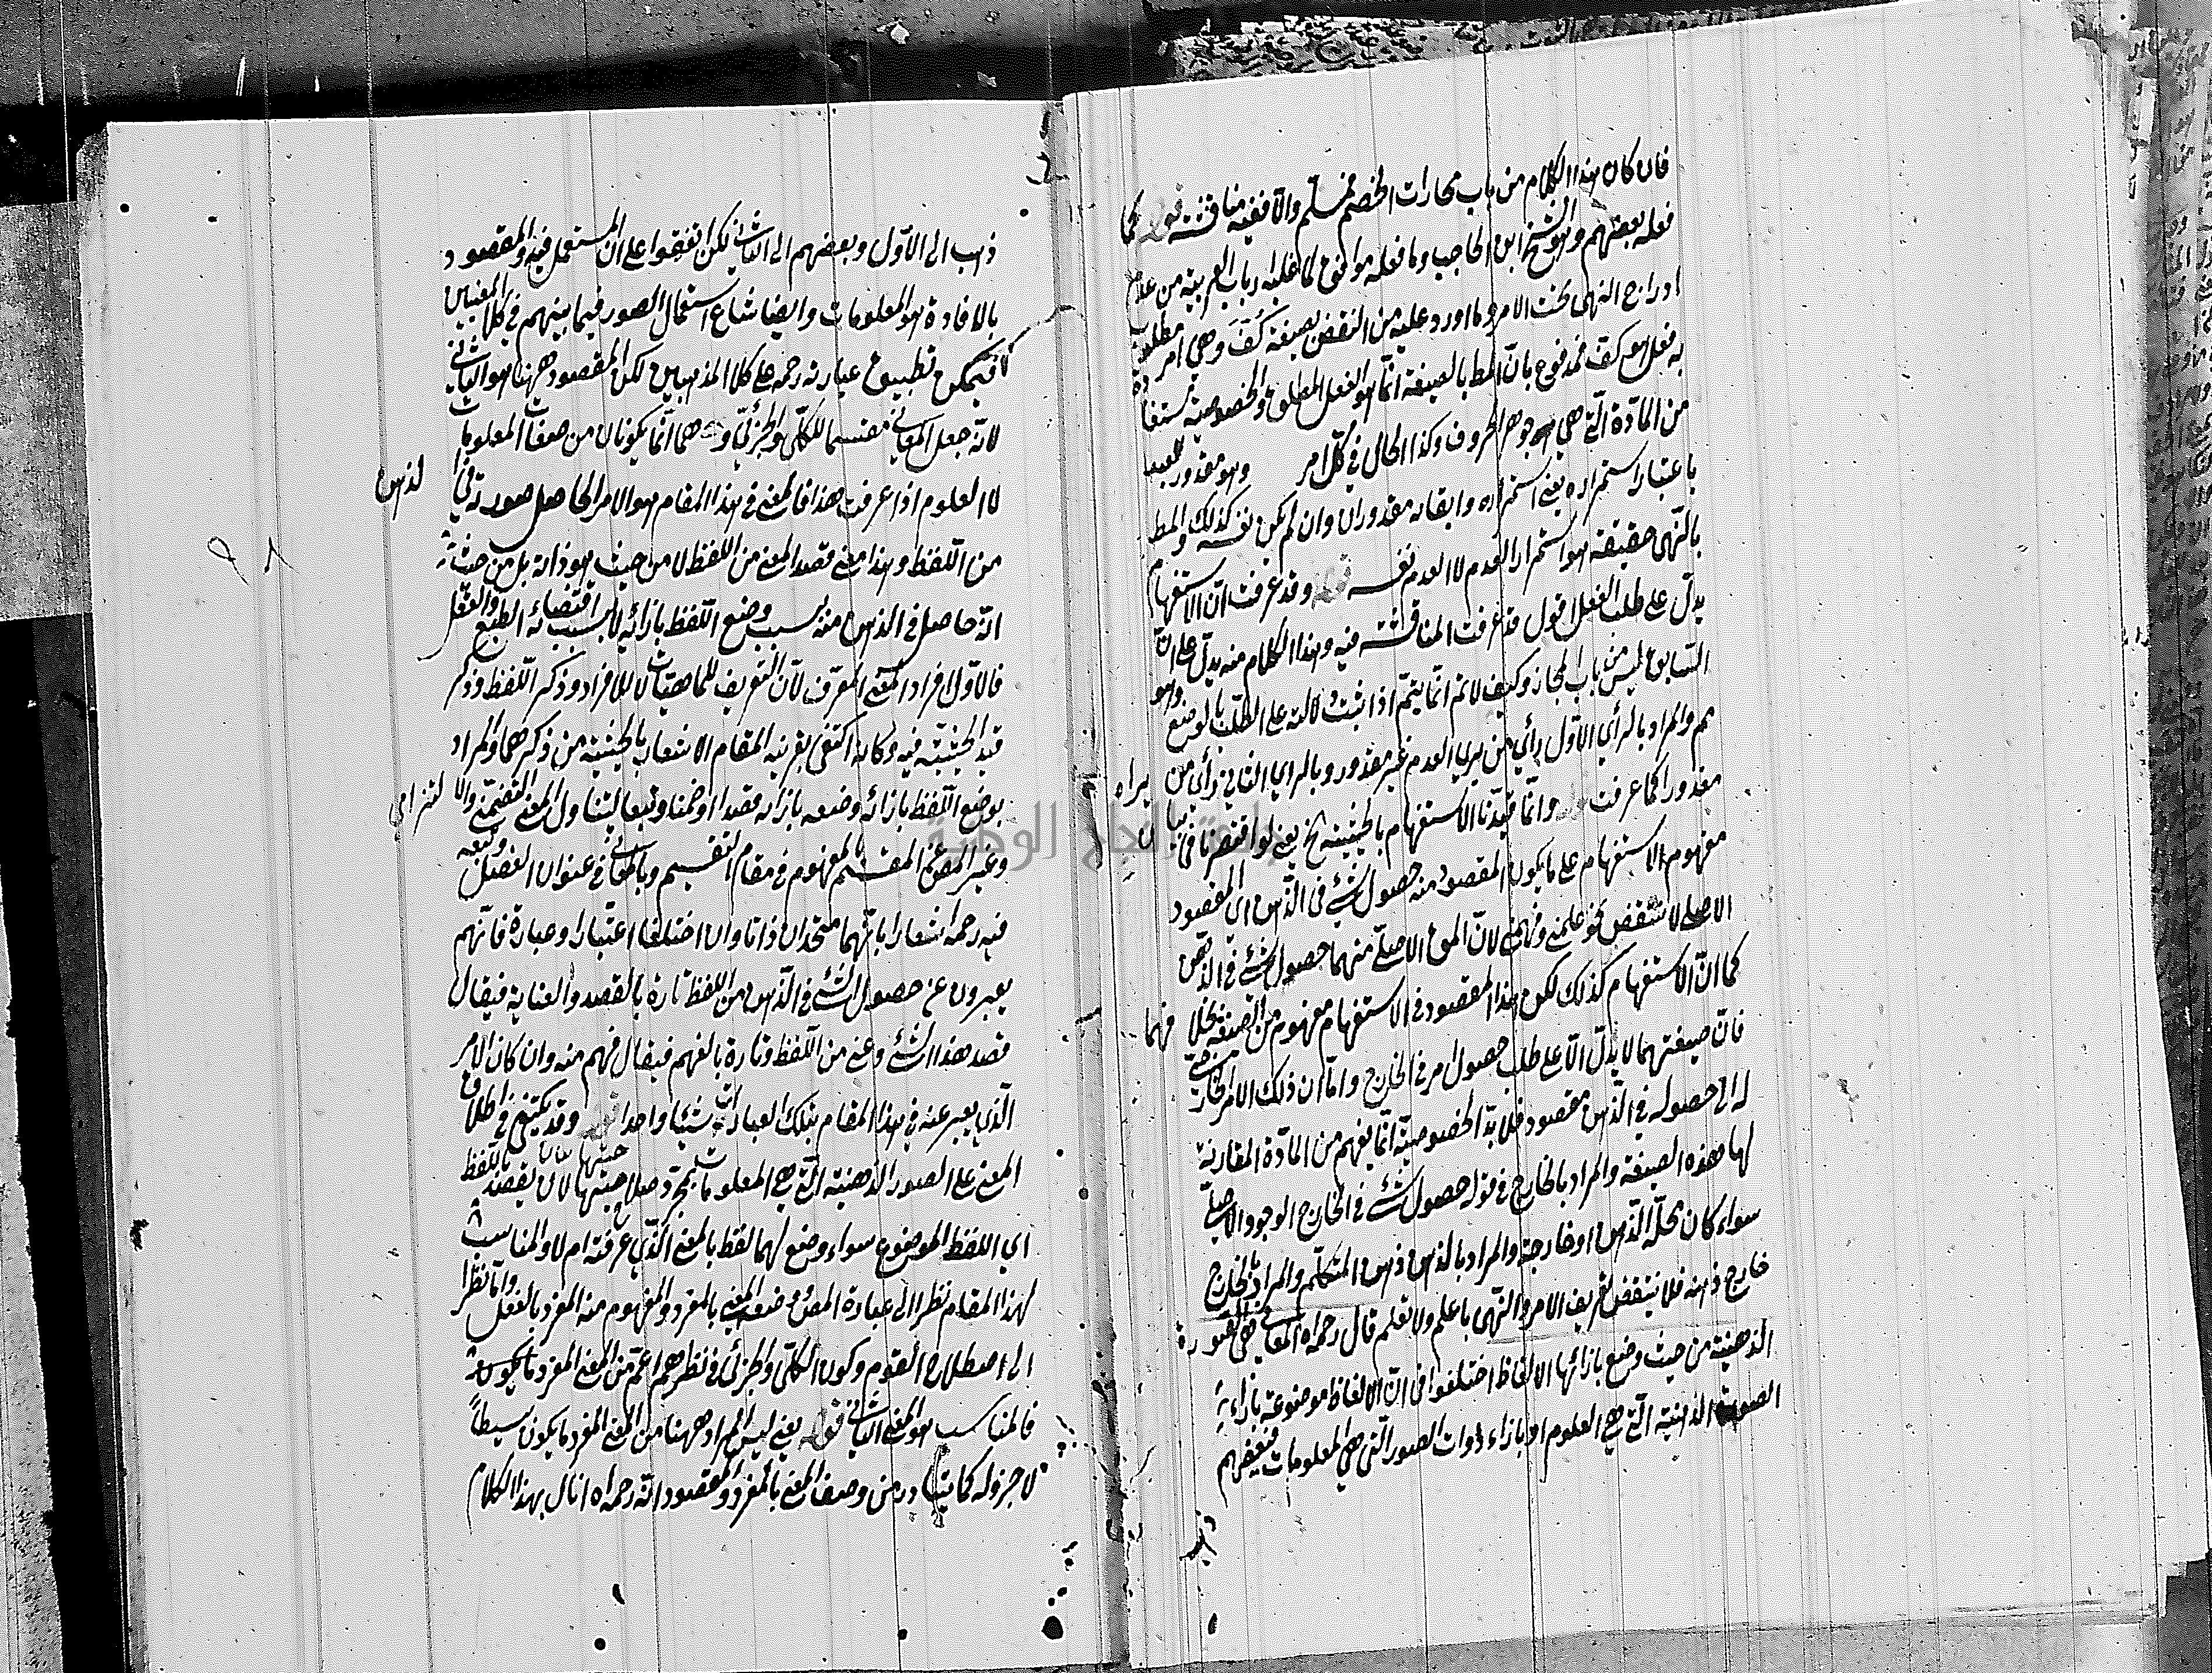 فان كان هذا الكلام من باب مجارات الخصم فمسلم والا ففيه مناقشة قوله كما
فعله بعضهم وهو الشيخ ابن الحاجب وما فعله موافق لما عليه ارباب العربية من
ادراج النهى تحت الامر وما اورد عليه من النقض بصيغة كف وهي امر مطلوب
به فعل هو كف فمدفوع بان المط بالصيغة انما هو الفعل المطلق والخصوصية مستفادة
من المادة التي هي جوهر الحروف وكذا الحال في كل امر وهو مقدور للعبد
باعتبار استمراره يعنى استمراره وابقاءه مقدوران وان لم يكن نفسه كذلك والمط
بالنهى حقيقة هو استمرار العدم لا العدم نفسه قوله وقد عرفت ان الاستفهام
يدل على طلب الفعل اقول قد عرفت المناقشة فيه وهذا الكلام منه يدل على ان
السابق ليس من باب المجاز وكيف لا فانه انما يتم اذا ثبت دلالته على الطلب بالوضع وهو
مم والمراد بالرأي الاول رأي من يرى العدم غير مقدور وبالراي الثاني رأى من يراه
مقدورا كما عرفت قوله وانما قيدنا الاستفهام بالحيثية الخ يعنى لو اقتصرنا في بيان
مفهوم الاستفهام على ما يكون المقصود منه حصول شئ في الذهن اي المقصود
الاصلي لا نتقض بنحو علمني وفهمني لان المق الاصلي منهما حصول شئ في الذهن
كما ان الاستفهام كذلك لكن هذا المقصود في الاستفهام مفهوم من الصيغة بخلا فهما
فان صيغتهما لا يدل الا على طلب حصول امر في الخارج واما ان ذلك الامر الخارج
له اي حصوله في الذهن مقصود فلا بد الخصوصية انما يفهم من المادة المقارنة
لها هذه الصيغة والمراد بالخارج في قوله حصول شئ في الخارج الوجود الاصلي
سواء كان محله الذهن او خارجة والمراد بالذهن ذهن المتكلم والمراد بالخارج
خارج ذهنه فلا ينتقض تعريف الامر والنهى باعلم ولا تعلم قال رحمه الله المعاني هي الصورة
الذهنية من حيث وضع بازائها الالفاظ اختلفوا في ان الالفاظ موضوعة بازاء
الصورة الذهنية التي هي العلوم او بازاء ذوات الصور التي هي المعلومات فبعضهم
ذهب الى الاول وبعضهم الى الثاني لكن اتفقوا على ان المستعمل فيه والمقصود
بالافادة هو المعلومات وايضا شاع استعمال الصور فيما بينهم في كلا المعنيين
فيمكن تطبيق عبارته رحمه على كلا المذهبين لكن المقصود ههنا هو الثاني
لانه جعل المعاني مقسما للكلي والجزئي وهما انما يكونان من صفات المعلومات
لا العلوم اذا عرفت هذا فالمعنى في هذا المقام هو الامر الحاصل صورته في الذهن
من اللفظ وهذا معنى قصد المعنى من اللفظ لا من حيث هو ذاته بل من حيث
انه حاصل في الذهن منه بسبب وضع اللفظ بازائه لا بسبب اقتضائه الطبع والعقل
فالاول افراد المعنى المعرف لان التعريف للماهيات لا للافراد وذكر اللفظ وذكر
قيد الحيثية فيه وكانه اكتفى بقرينة المقام الاشعار بالحيثية من ذكرهما والمراد
بوضع اللفظ بازائه وضعه بازائه قصدا او ضمنا وتبعا ليتناول المعنى التضمني والالتزامي
وعبر المص عن المقسم بالمفهوم في مقام التقسيم وبالمعاني في عنوان الفصل وتبعه
فيه رحمه اشعارا بانهما متحدان ذاتا وان اختلفا اعتبارا وعبارة فانهم
يعبرون عن حصول الشئ في الذهن من اللفظ تارة بالقصد والعناية فيقال
قصد هذا الشئ وعنى من اللفظ وتارة بالفهم فيقال فهم منه وان كان الامر
الذي يعبر عنه في هذا المقام بتلك العبارات شيئا واحدا قوله وقد يكتفى في اطلاق
المعنى على الصور الذهنية التي هي المعلومات بمجرد صلاحيتها لان يقصد باللفظ
اي اللفظ الموضوع سواء وضع لها لفظ بالمعنى الذي عرفته ام لا والمناسب
لهذا المقام نظرا الى عبارة المص وصفه المعنى بالمفرد والمفهوم منه المفرد بالفعل واما نظرا
الى اصطلاح القوم وكون الكلي والجزئي في نظرهم اعم من المعنى المفرد
فالمناسب هو المعنى الثاني قوله يعنى ليس المراد ههنا من المعنى المفرد ما يكون بسيطا
لا جزء له كما يتبادر من وصف المعنى بالمفرد والمقصود انه رحمه الله انال بهذا الكلام
جامعة النجاح الوطنية